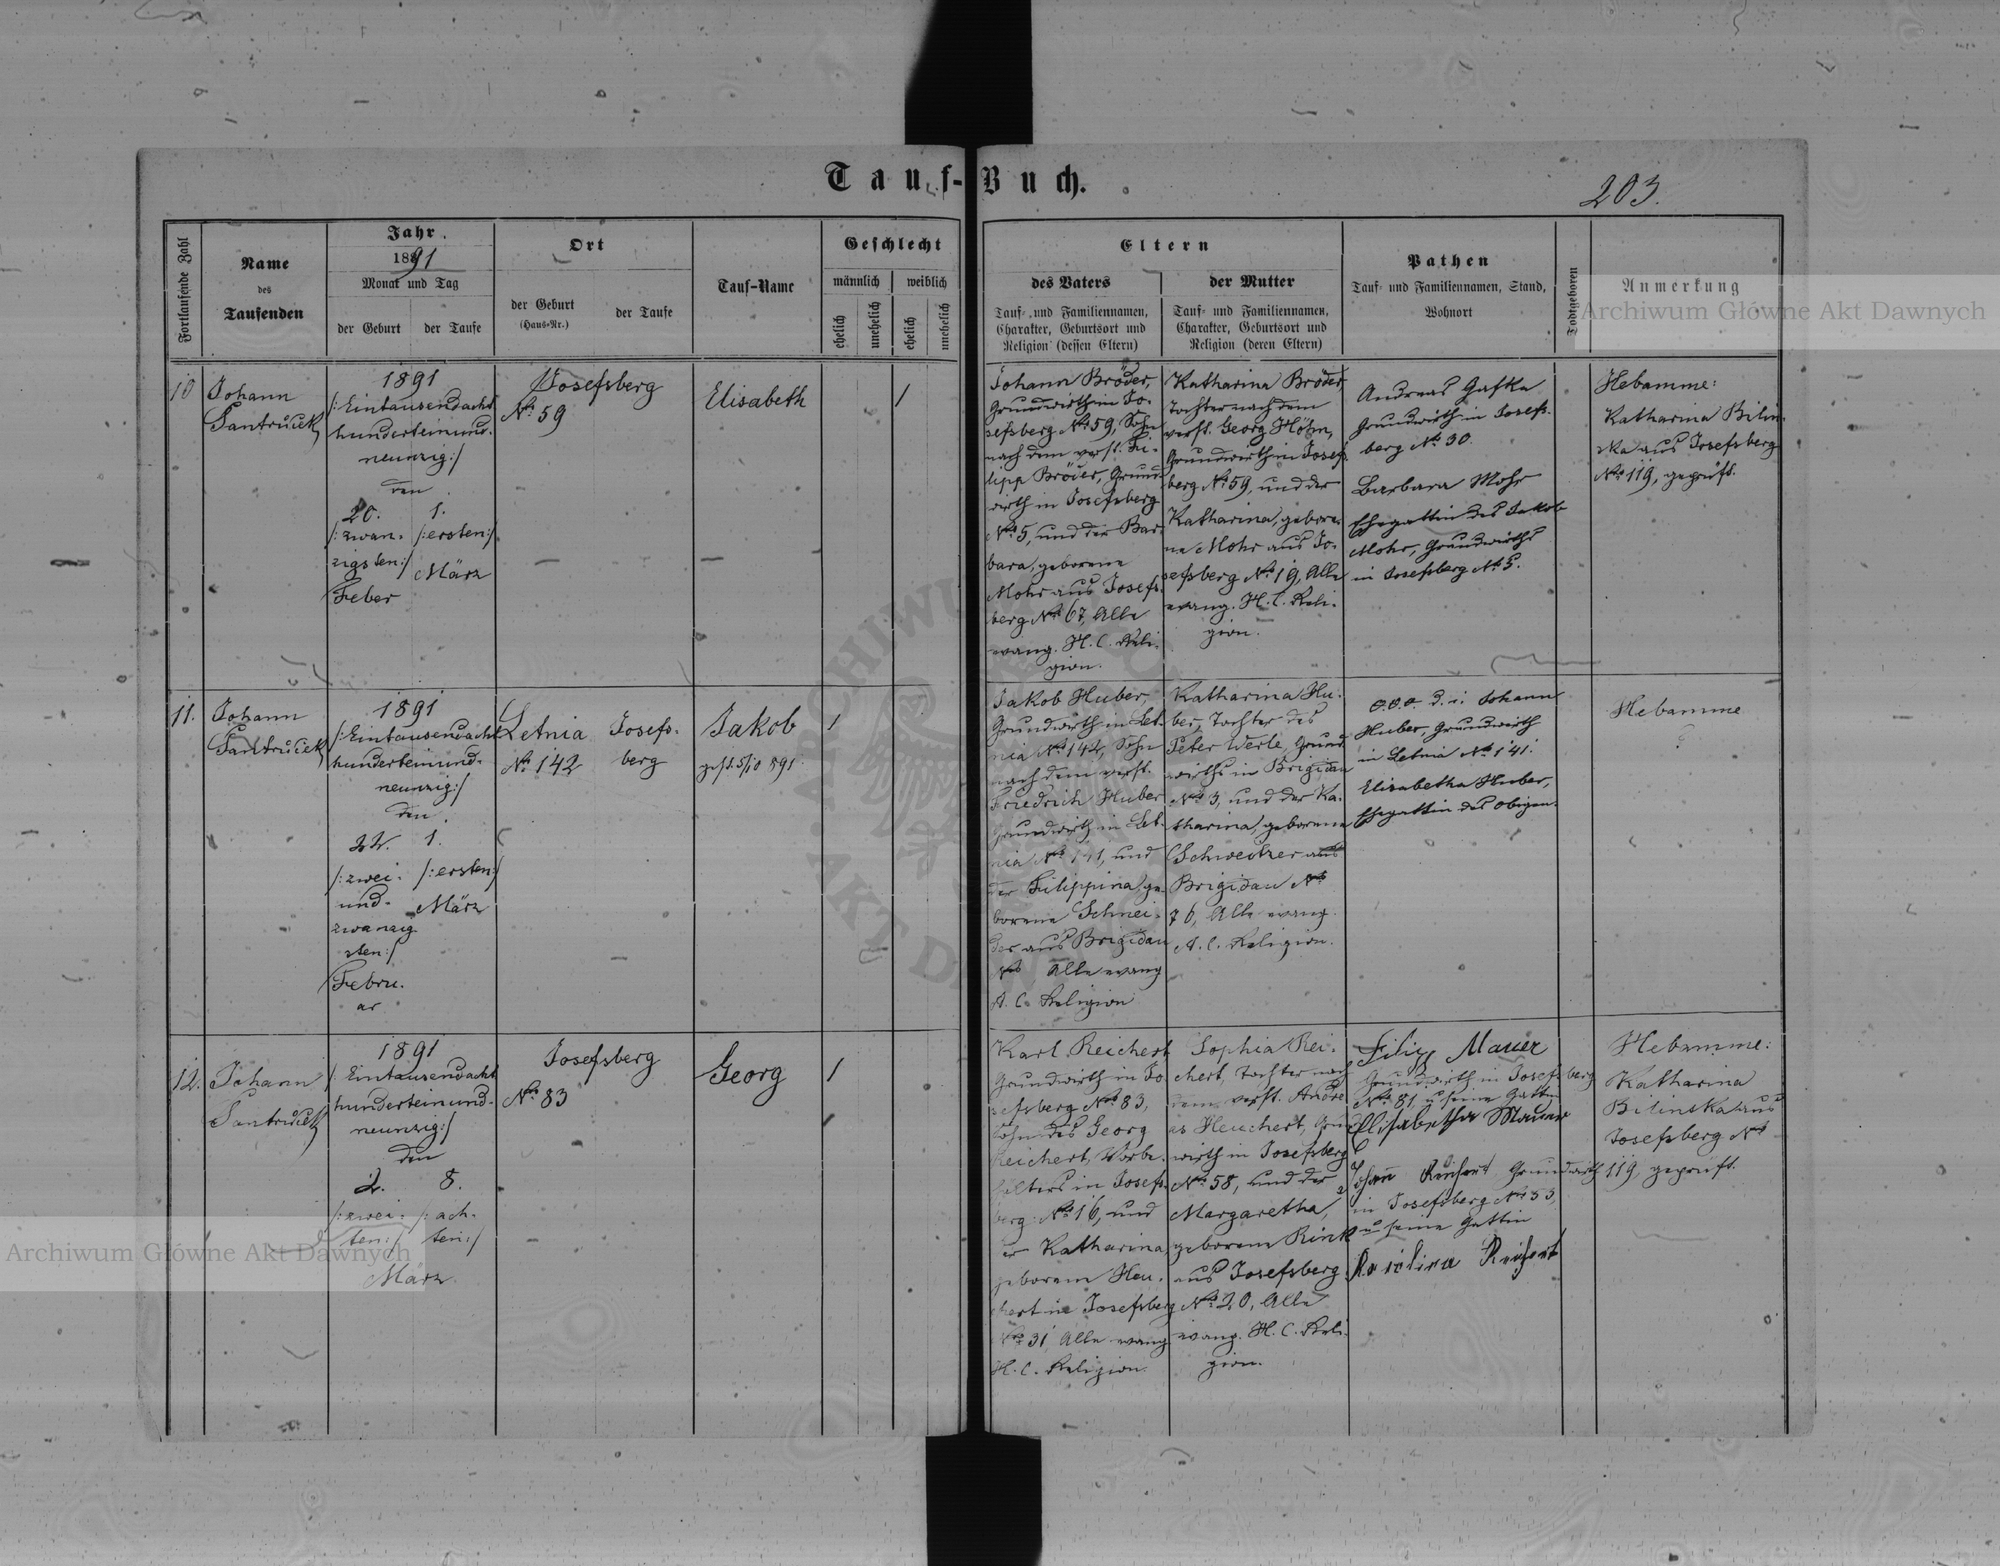 Tauf-Buch.
203.
Fortlaufende Zahl
Name
des
Taufenden
Jahr
1891
Monat und Tag
der Geburt
der Taufe
Ort
der Geburt
(Haus-Nr.)
der Taufe
Tauf-Name
Geschlecht
männlich
weiblich
ehelich
unehelich
ehelich
unehelich
Eltern
des Vaters
Tauf- und Familiennamen,
Charakter, Geburtsort und
Religion (dessen Eltern)
der Mutter
Tauf- und Familiennamen,
Charakter, Geburtsort und
Religion (deren Eltern)
Pathen
Tauf- und Familiennamen, Stand,
Wohnort
Todtgeboren
Anmerkung
Archiwum Główne Akt Dawnych
10
Johann
Santruček
1891
/: Eintausendacht
hunderteinund-
neunzig:/
den
20.
/: zwan-
zigsten:/
Feber
1.
/: ersten:/
März
Josefsberg
No 59
Elisabeth
1
Johann Bröder,
Grundwirth in Jo-
sefsberg No 59, Sohn
nach dem verst. Fi-
lipp Bröder, Grund
wirth in Josefsberg
No 5, und der Bar-
bara, geborene
Mohr aus Josefs-
berg No 67, Alle
evang. H. C. Reli-
gion.
Katharina Bröder,
Tochter nach dem
verst. Georg Höhn,
Grundwirth in Josef-
berg No 59, und der
Katharina, gebore-
ne Mohr aus Jo-
sefsberg No 19, Alle
evang. H. C. Reli-
gion.
Andreas Gafka
Grundwirth in Josefs-
berg No 30.
Barbara Mohr
Ehegattin des Jakob
Mohr, Grundwirths
in Josefsberg No 5.
Hebamme:
Katharina Bilin-
ska aus Josefsberg
No 119, geprüft.
11.
Johann
Santruček
1891
/: Eintausendacht
hunderteinund-
neunzig:/
den
22.
/: zwei-
und-
zwanzig
sten:/
Febru-
ar
1.
/: ersten:/
März
Letnia
No 142
Josefs-
berg
Jakob
gest. 5/10 891.
1
Jakob Huber,
Grundwirth in Let-
nia No 142, Sohn
nach dem verst.
Friedrich Huber
Grundwirth in Let-
nia No 141, und
der Filippina, ge-
borene Schnei-
der aus Brigidau
No Alle evang
A. C. Religion
Katharina Hu-
ber, Tochter des
Peter Werle, Grund
wirths in Brigidau
No 3, und der Ka-
tharina, geborene
Schweitzer aus
Brigidau No
76, Alle evang.
A. C. Religion.
Johann
Huber, Grundwirth
in Letnia No 141.
Elisabetha Huber,
Ehegattin des obigen.
Hebamme
?
12.
Johann
Santruček
1891
/: Eintausendacht
hunderteinund-
neunzig:/
den
2.
/: zwei-
ten:/
8.
/: ach-
ten:/
März
Josefsberg
No 83
Georg
1
Karl Reichert
Grundwirth in Jo
sefsberg No 83,
Sohn des Georg
Reichert, Vorbe-
hälters in Josefs-
berg No 16, und
der Katharina,
geborenen Heu-
chert in Josefsberg
No 31, Alle evang
H. C. Religion.
Sophia Rei-
chert, Tochter nach
dem verst. Andre
as Heuchert, Grund
wirth in Josefsberg
No 58, und der
Margaretha,
geborenen Rink
aus Josefsberg
No 20, Alle
evang. H. C. Reli-
gion.
Filip Mauer
Grundwirth in Josefsberg
No 81, u seine Gattin
Elisabetha Mauer
Johann Reichert Grundwirth
in Josefsberg No 53,
u seine Gattin
Karolina Reichert
Hebamme:
Katharina
Bilinska aus
Josefsberg No
119, geprüft.
Archiwum Główne Akt Dawnych
ARCHIWUM
AKT DAWNYCH